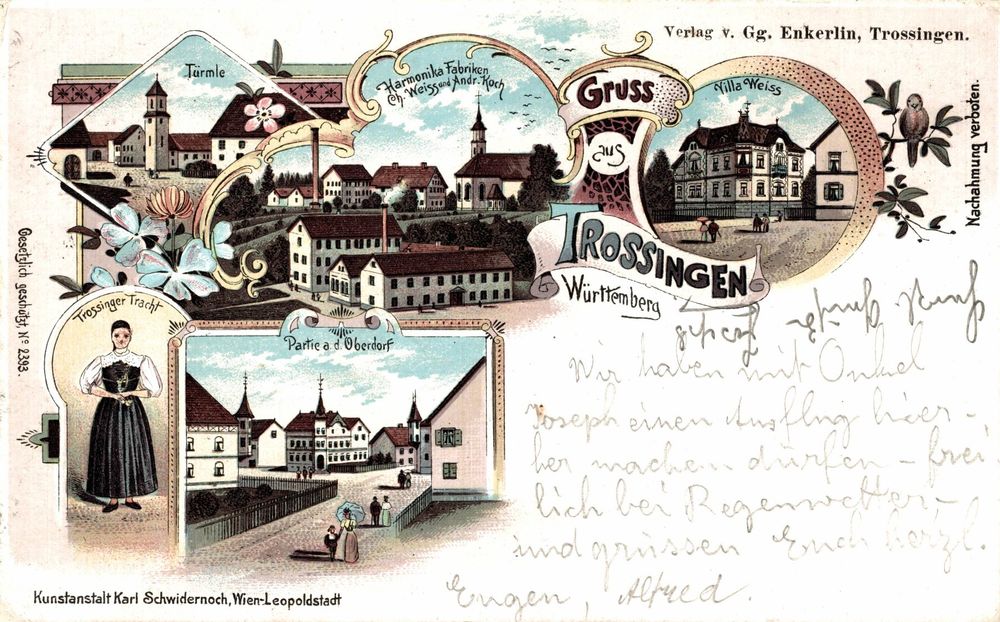 Verlag v. Gg. Enkerlin, Trossingen.
Türmle
Harmonika Fabriken
Ch. Weiss und Andr. Koch
Gruss
aus
Trossingen
Württemberg
Villa Weiss
Nachahmung verboten.
Gesetzlich geschützt No 2393.
Trossinger Tracht
Partie a. d. Oberdorf
Wir haben mit Onkel
Joseph einen Ausflug hier-
her machen dürfen – frei
lich bei Regenwetter –
und grüssen Euch herzl.
Eugen, Alfred.
Kunstanstalt Karl Schwidernoch, Wien-Leopoldstadt